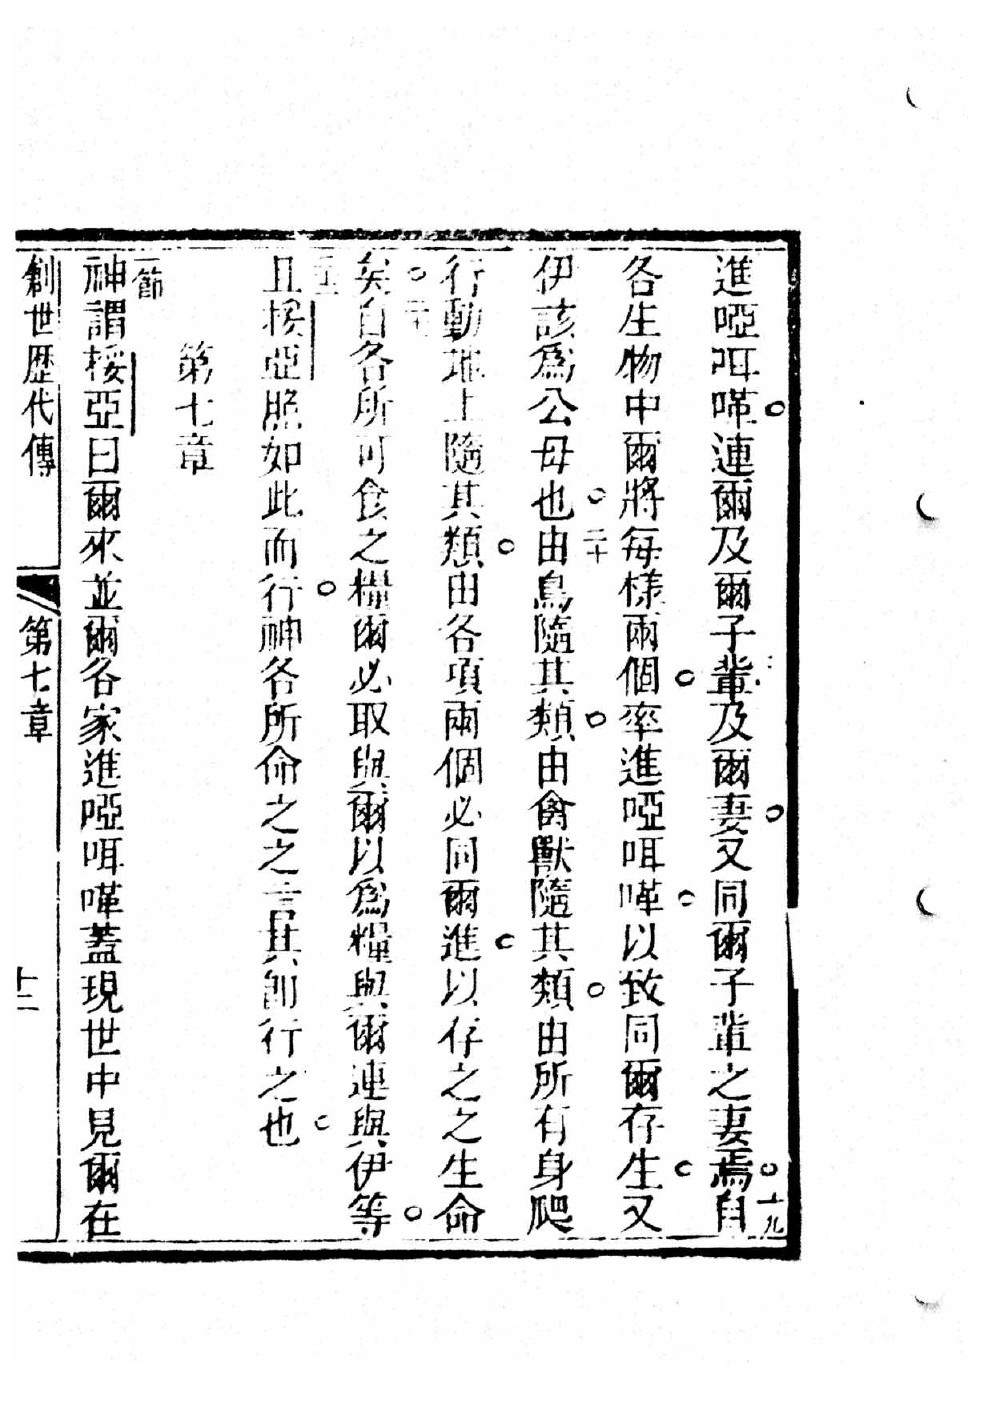 進啞咡㘔連爾及爾子輩及爾妻又同爾子輩之妻焉十九自
各生物中爾將每樣兩個率進啞咡㘔以致同爾存生又
伊該為公母也二十由鳥隨其類由禽獸隨其類由所有身爬
行動地上隨其類由各項兩個必同爾進以存之之生命
矣自各所可食之糧爾必取與爾以為糧與爾連與伊等
且挼亞照如此而行神各所命之之言其卽行之也
第七章
一節
神謂挼亞曰爾來並爾各家進啞咡㘔蓋現世中見爾在
創世歷代傳 第七章 十二